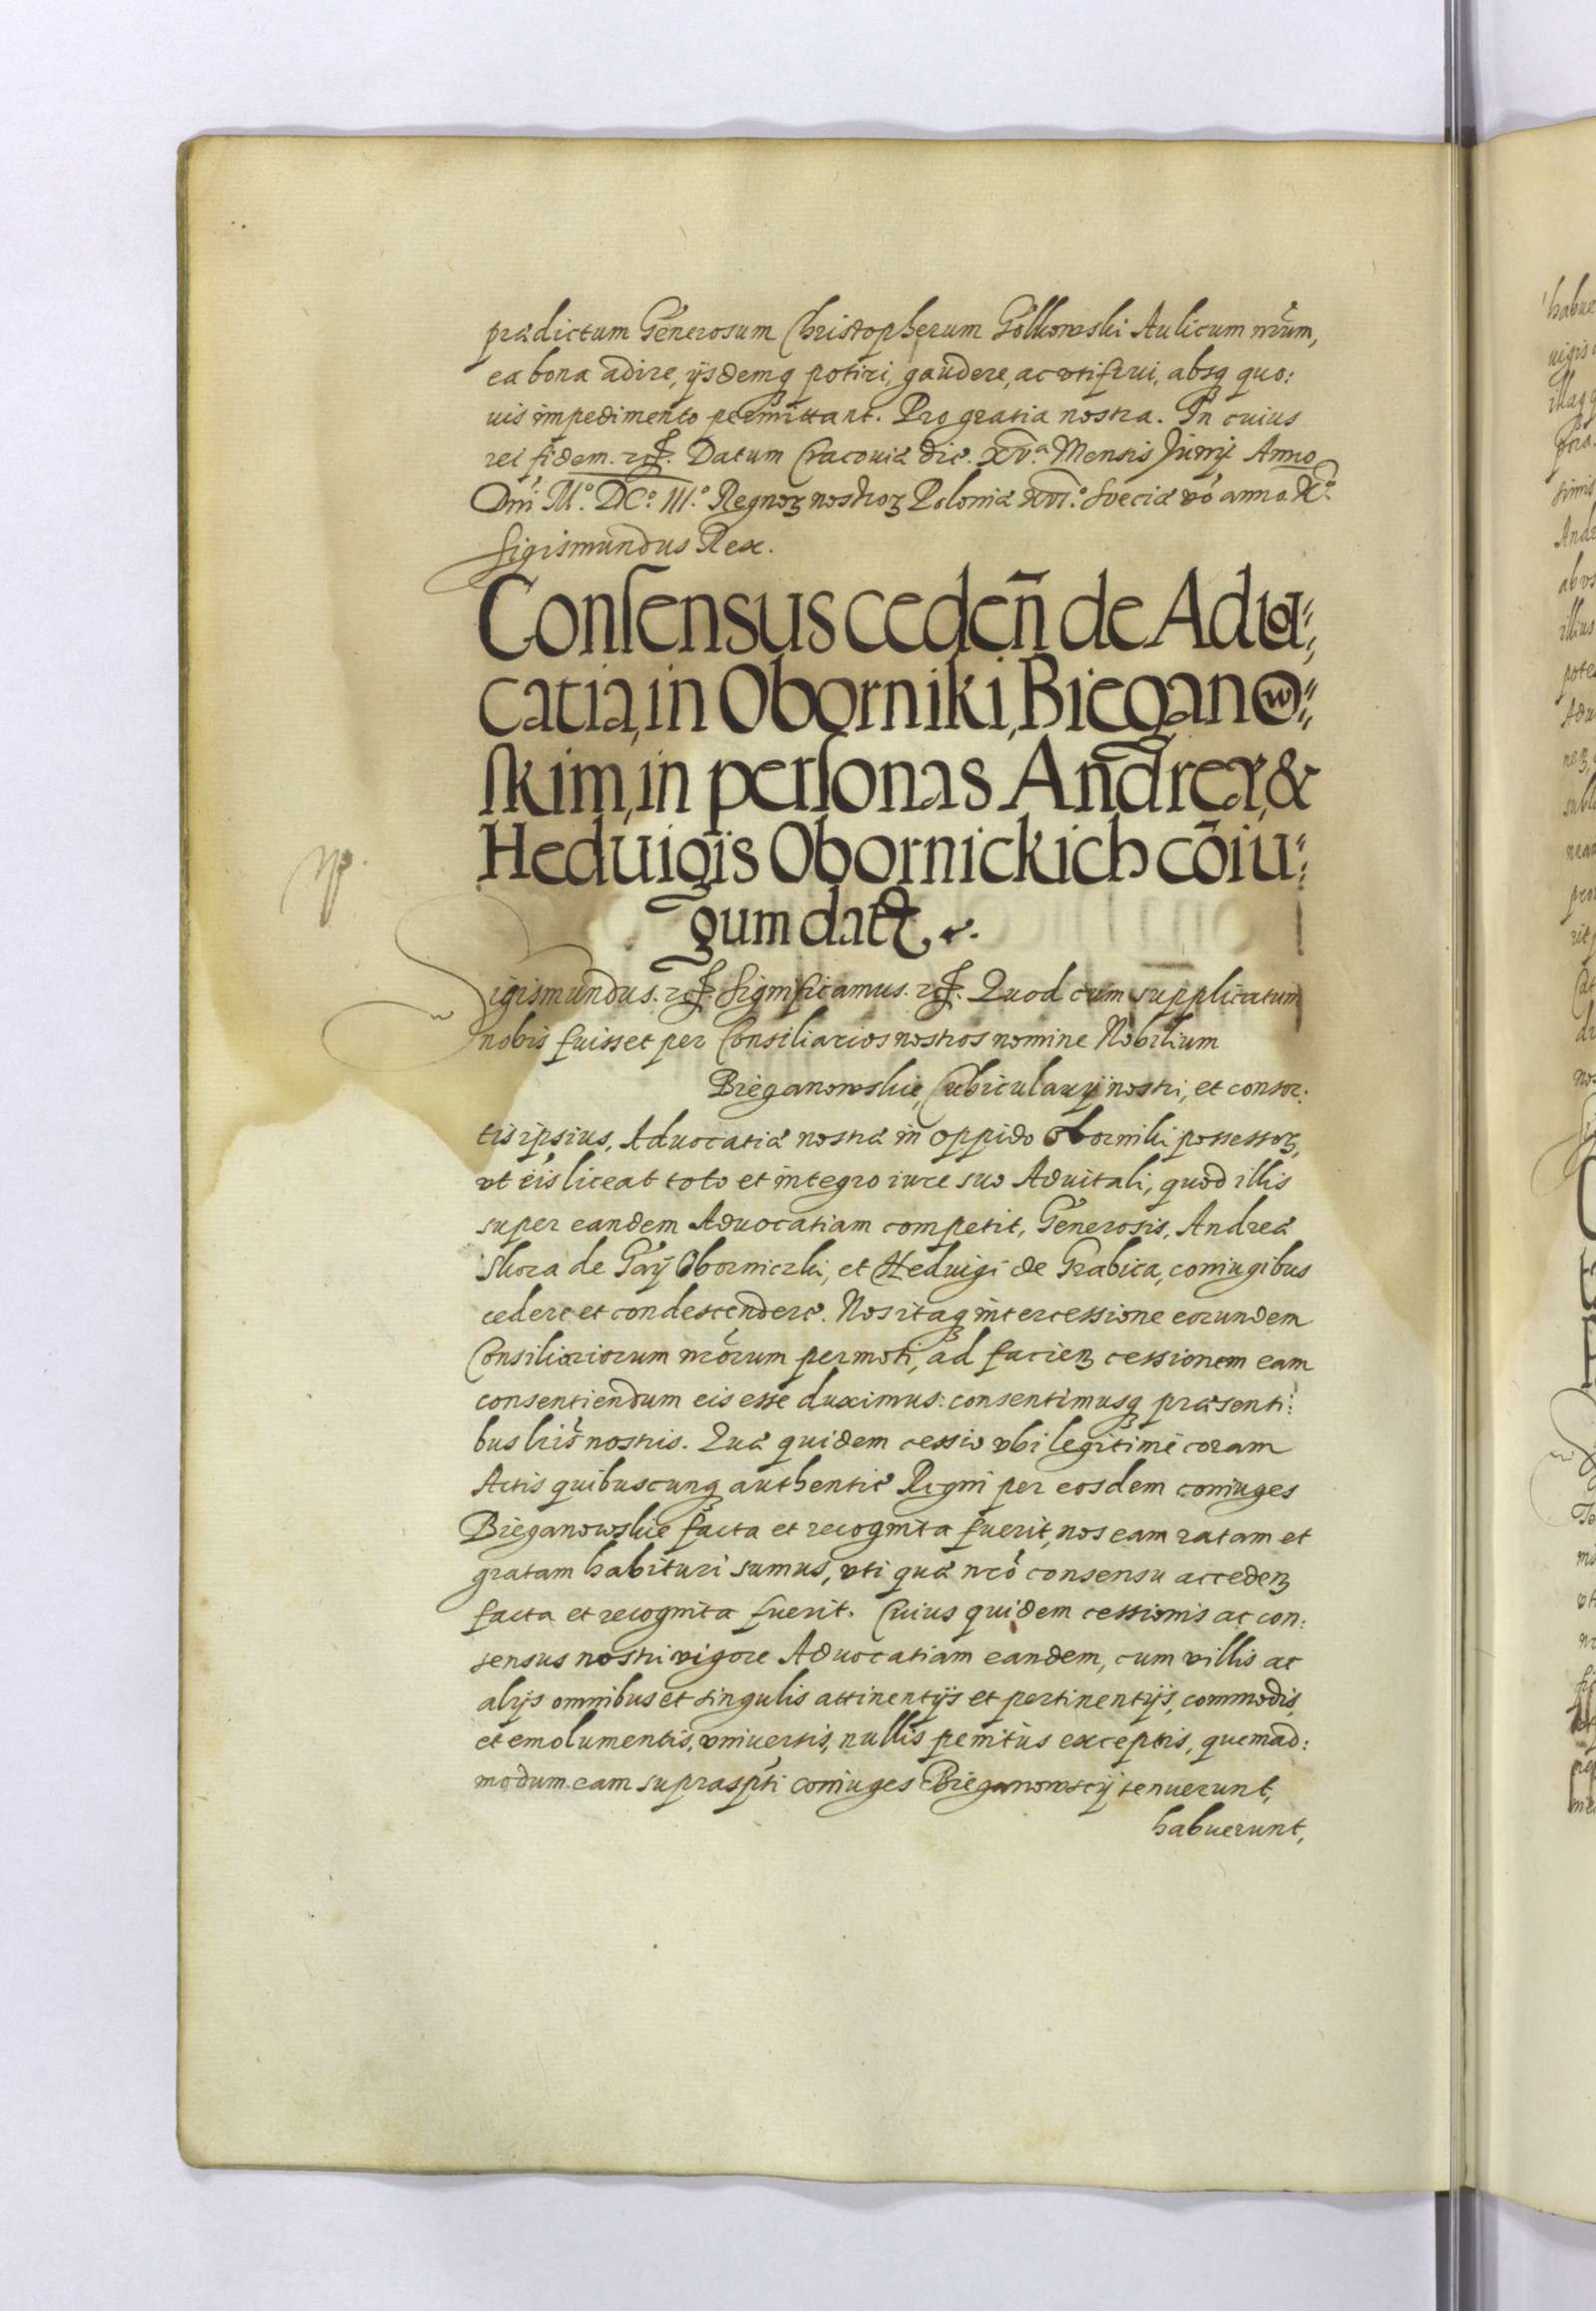 prædictum Generosum Christopherum Golkowski Aulicum nr̃um,
ea bona adire, ijsdemq̃ potiri, gaudere, ac vti frui, absq̃ quo:
uis impedimento permittant. Pro gratia nostra. In cuius
rei fidem. etc. Datum Cracouiæ die. XV.ª Mensis Junij Anno
Dni M.º DC.º III.º Regnoꝝ nostroꝝ Poloniæ XVI.º Sveciæ vó anno. X.º
Sigismundus Rex.
Consensus cedeñ de Aduo:
catia, in Oborniki, Biegano:
skim, in personas Andreæ, &
Heduigis Obornickich cõiu:
gum datꝫ.
Sigismundus. etc. Significamus. etc. Quod cum supplicatum
nobis fuisset per Consiliarios nostros nomine Nobilium
Bieganowskie, Cubicularij nostri, et consor:
tis ipsius, Aduocatiæ nostræ in oppido Oborniki possessoꝝ,
vt eis liceat toto et integro iure suo Aduitali, quod illis
super eandem Aduocatiam competit, Generosis, Andreæ
Skora de Gaÿ Oborniczki, et Heduigi de Grabica, coniugibus
cedere et condescendere. Nos itaq̃ intercessione eorundem
Consiliariorum nr̃orum permoti, ad facienꝫ cessionem eam
consentiendum eis esse duximus: consentimusq̃ præsenti:
bus lr̃is nostris. Quæ quidem cessio vbi legitimè coram
Actis quibuscunq̃ authenticꝭ Regni per eosdem coniuges
Bieganowskie facta et recognita fuerit, nos eam ratam et
gratam habituri sumus, vti quæ nr̃ó consensu accedenꝫ
facta et recognita fuerit. Cuius quidem cessionis ac con:
sensus nostri vigore Aduocatiam eandem, cum villis ac
alijs omnibus et singulis attinentijs et pertinentijs, commodis,
et emolumentis, vniuersis, nullis penitùs exceptis, quemad:
modum eam suprasp̃ti coniuges Bieganowscij tenuerunt,
habuerunt,